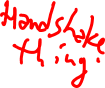 Handshake
thing.